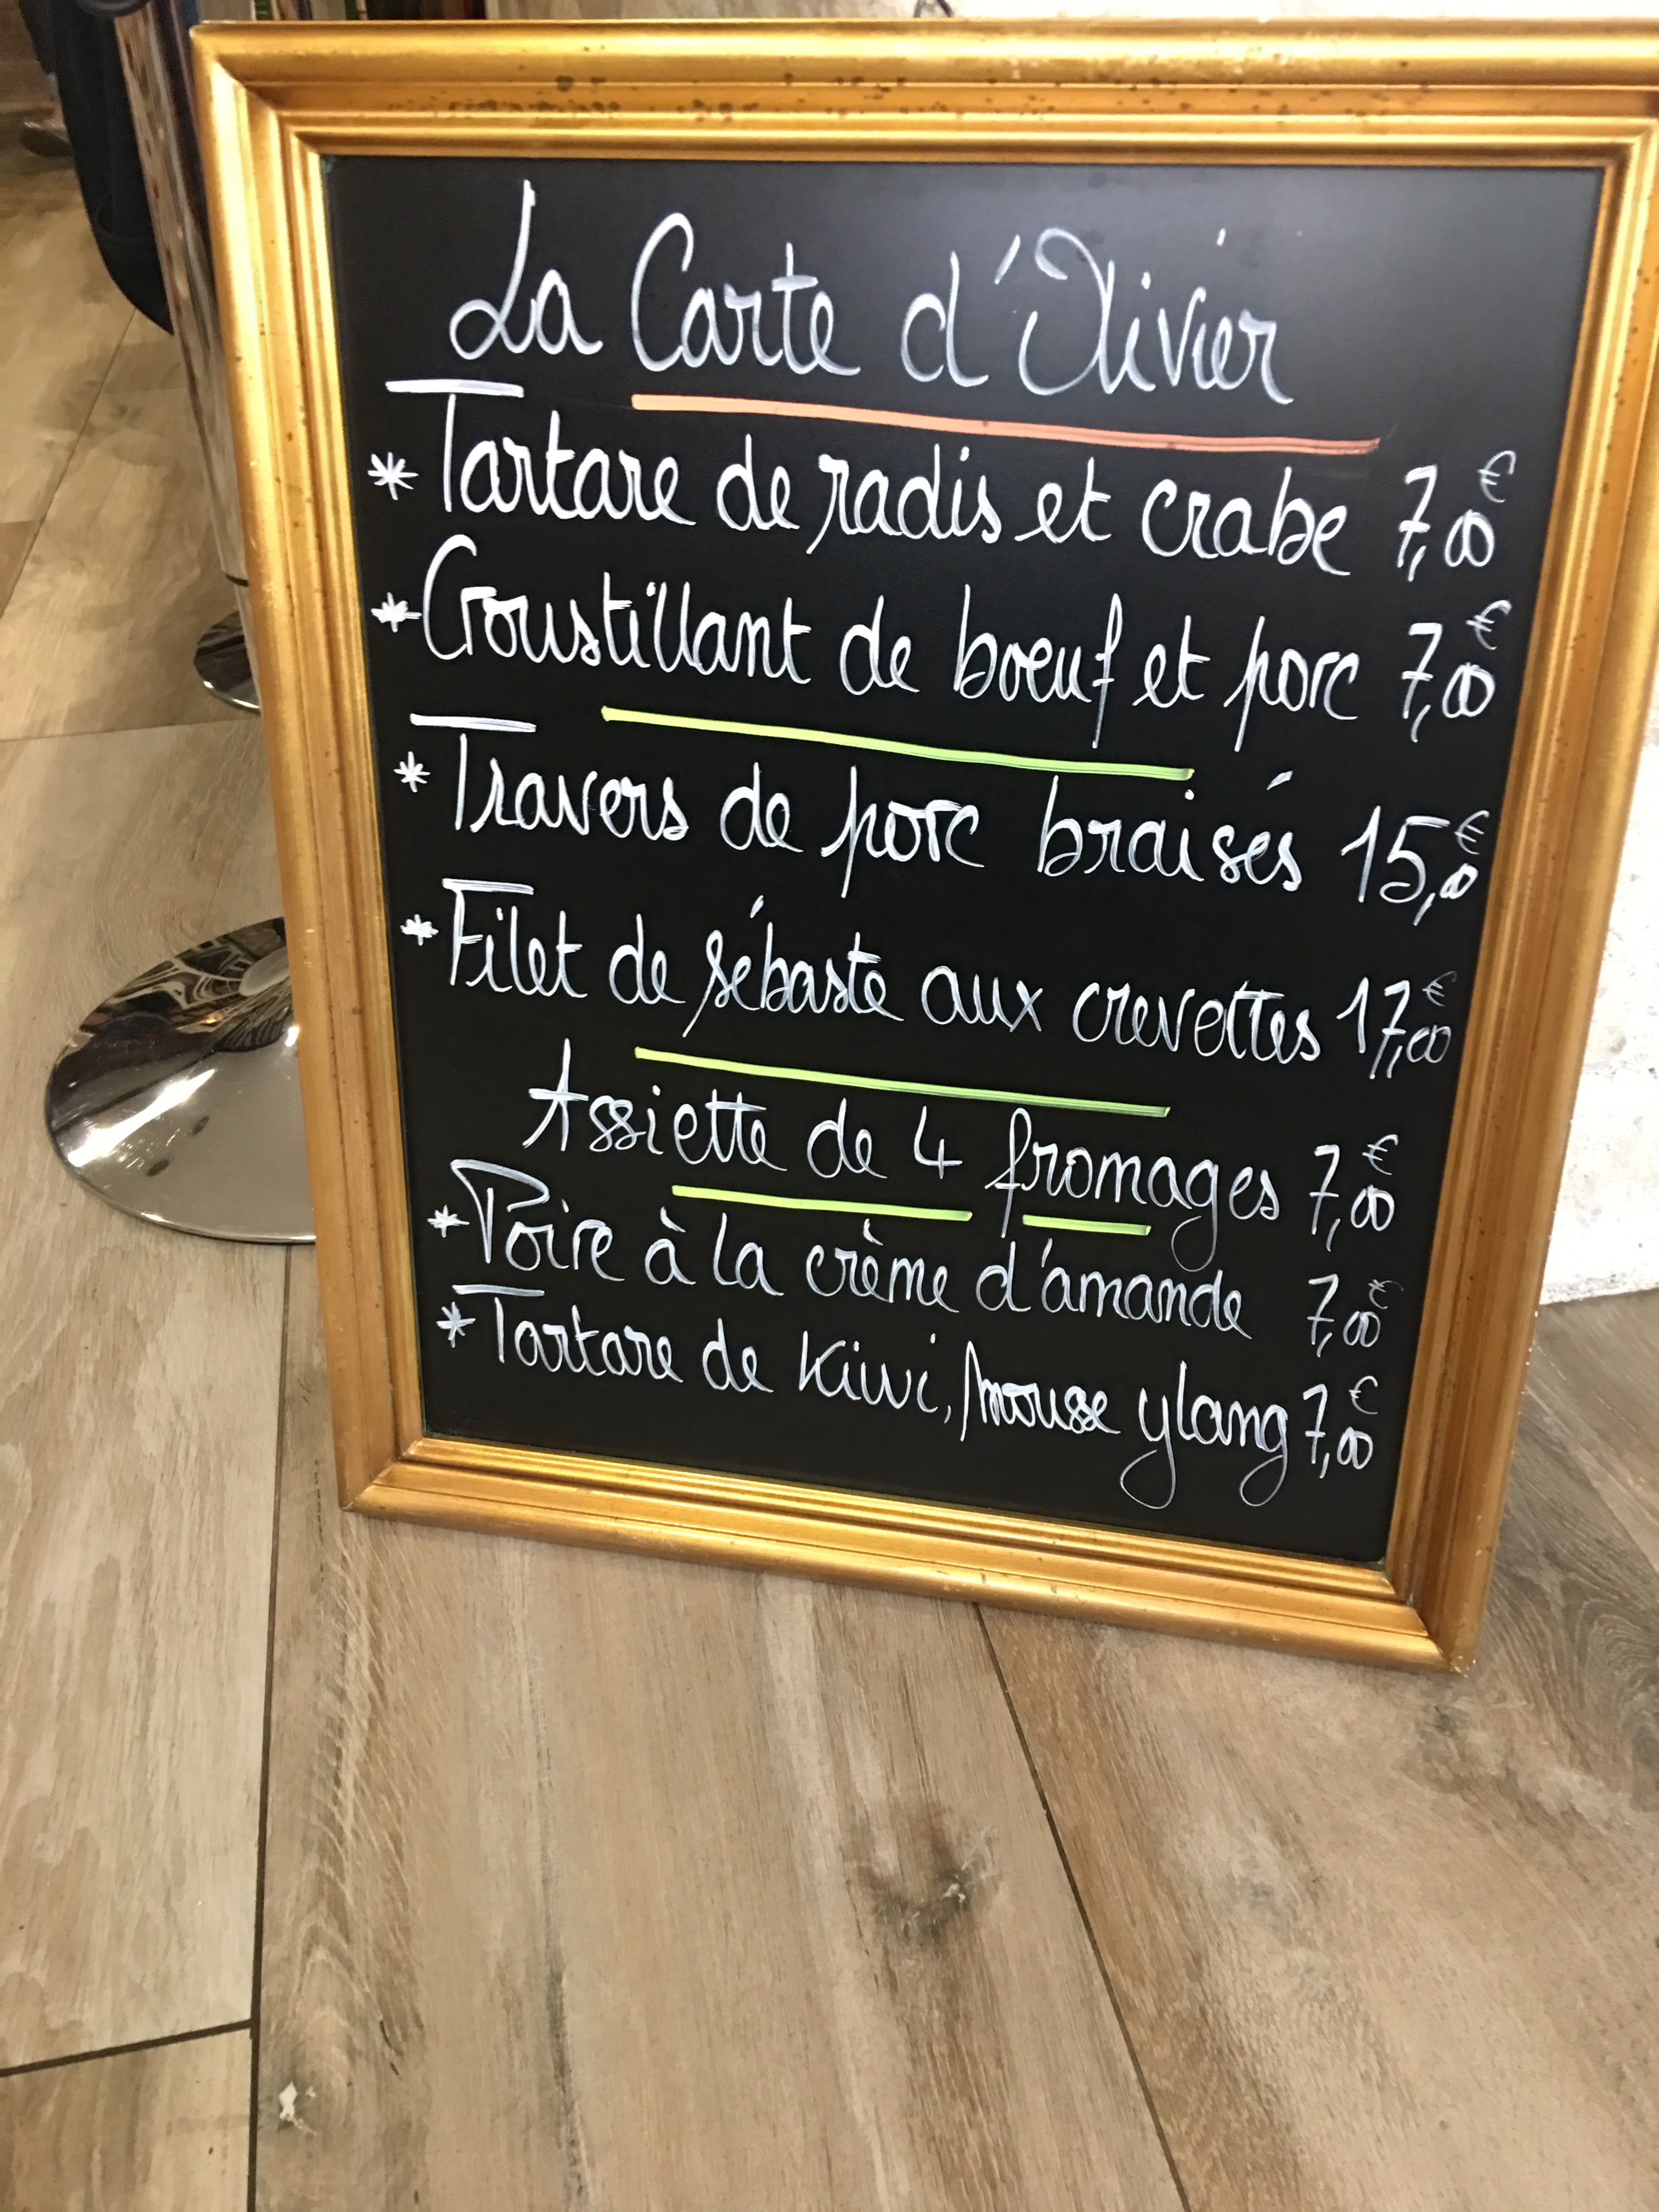 La Carte d'Olivier
* Tartare de radis et crabe 7,00€
* Croustillant de boeuf et porc 7,00€
* Travers de porc braisés 15,00€
* Filet de sébaste aux crevettes 17,00€
Assiette de 4 fromages 7,00€
* Poire à la crème d'amande 7,00€
* Tartare de Kiwi, mousse ylang 7,00€